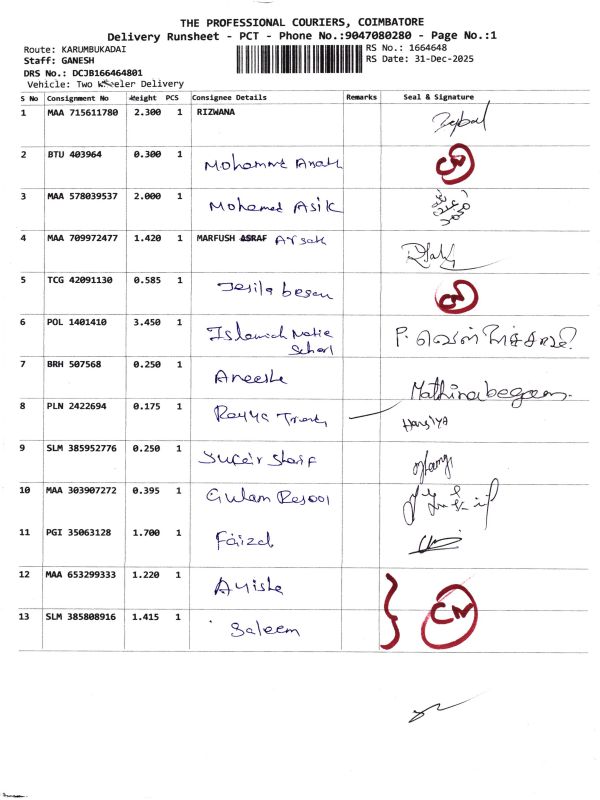 THE PROFESSIONAL COURIERS, COIMBATORE
Delivery Runsheet - PCT - Phone No.:9047080280 - Page No.:1
Route: KARUMBUKADAI RS No.: 1664648
Staff: GANESH RS Date: 31-Dec-2025
DRS No.: DCJB166464801
Vehicle: Two Wheeler Delivery
S No Consignment No Weight PCS Consignee Details Remarks Seal & Signature
1 MAA 715611780 2.300 1 RIZWANA
2 BTU 403964 0.300 1 Mohammed
3 MAA 578039537 2.000 1 Mohamed Asik
4 MAA 709972477 1.420 1 MARFUSH ASRAF Arsath
5 TCG 42091130 0.585 1 Jesila begam
6 POL 1401410 3.450 1
7 BRH 507568 0.250 1 Aneesha Mathinabegam
8 PLN 2422694 0.175 1
9 SLM 385952776 0.250 1
10 MAA 303907272 0.395 1 Gulam Rasool
11 PGI 35063128 1.700 1 Faizal
12 MAA 653299333 1.220 1 Ayisha
13 SLM 385808916 1.415 1 Saleem
CN